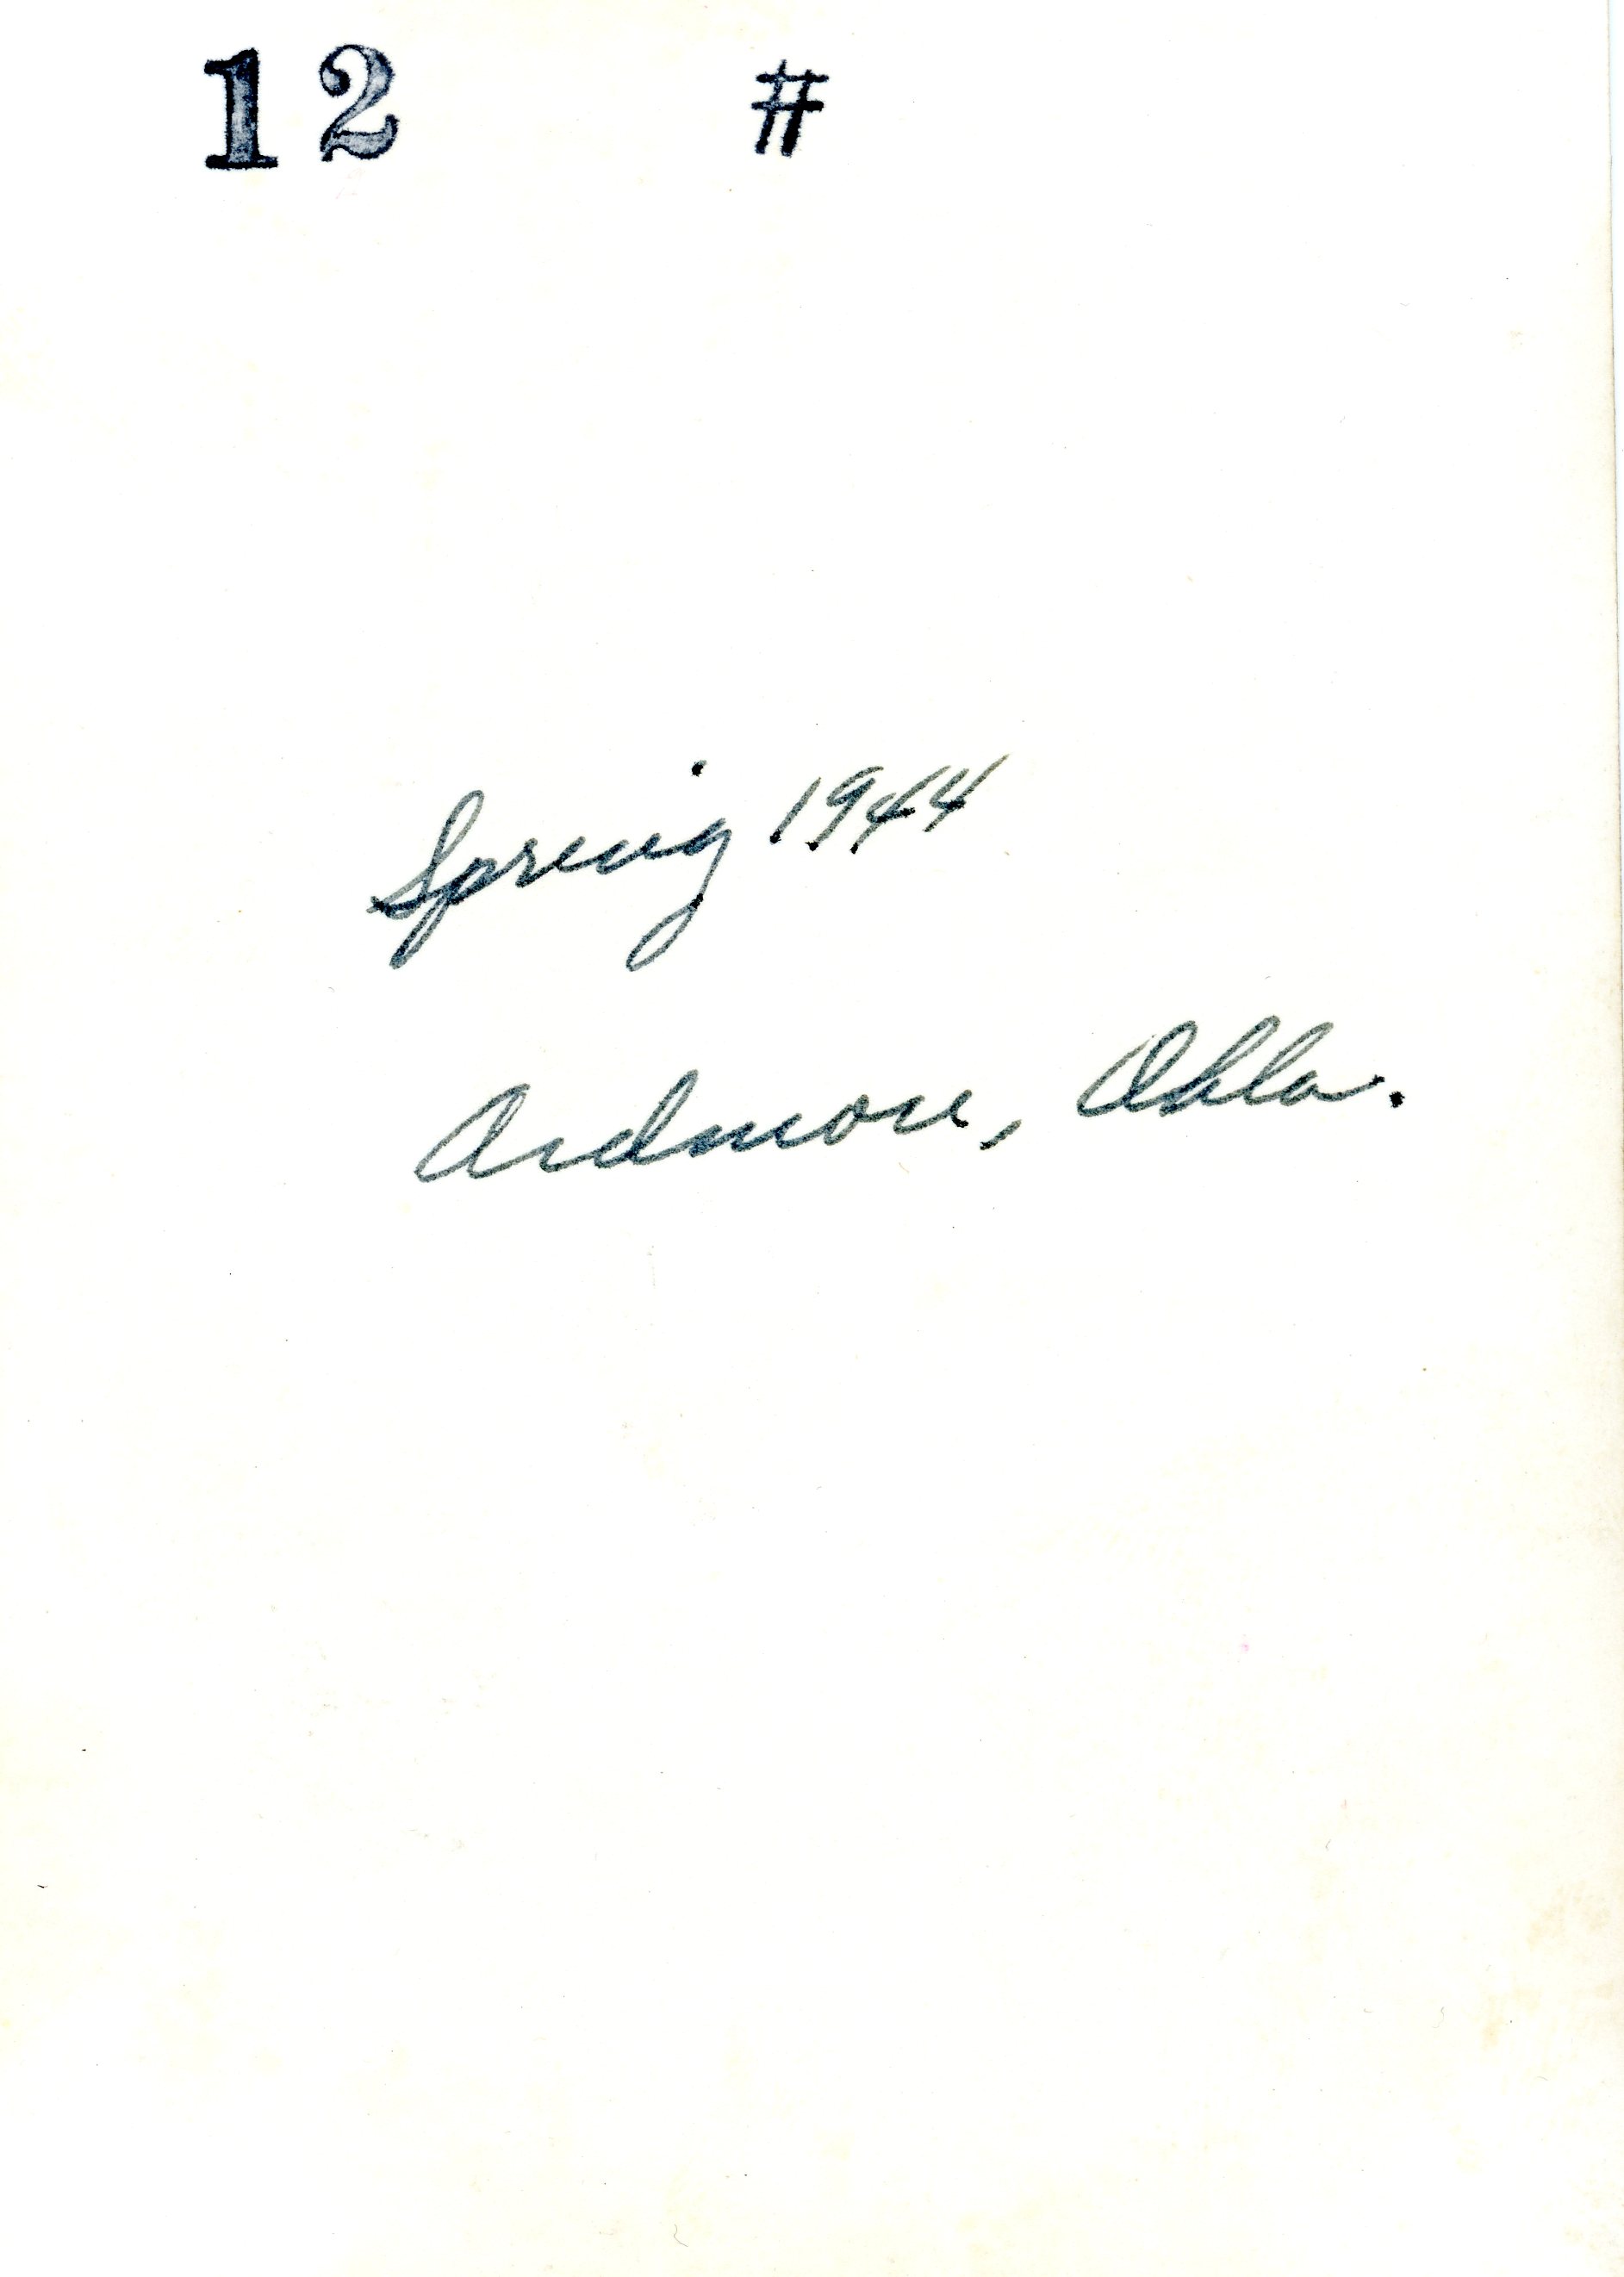 12 #
Spring 1944
Ardmore, Okla.